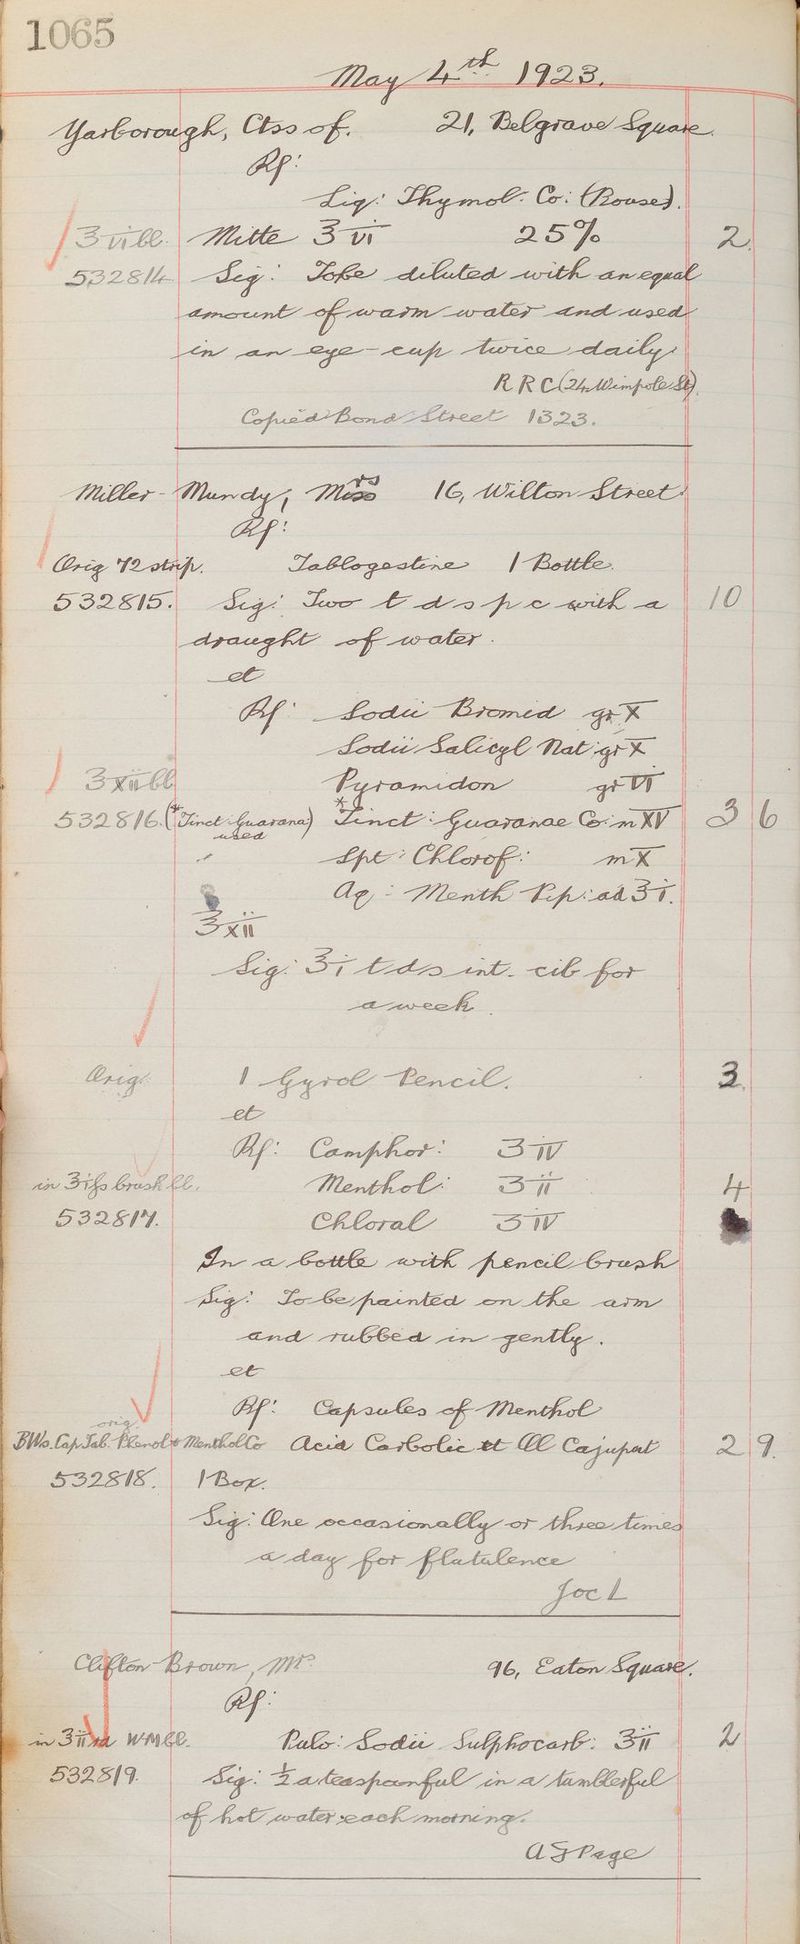 1065
May 4th 1923.
Yarborough, Ctss of. 21, Belgrave Square.
Rp:
Liq: Thymol. Co: (Rouse).
ʒvi bl. Mitte ʒvi 25% 2.
532814 Sig: To be diluted with an equal
amount of warm water and used
in an eye-cup twice daily
R R C (24 Wimpole St)
Copied Bond Street 1323.
Miller-Mundy, Mrs 16, Wilton Street
Rp:
Orig 72 strip. Tablogestine 1 Bottle.
532815. Sig: Two t d s p c with a 10
draught of water.
et
Rp: Sodii Bromid gr X
Sodii Salicyl Nat gr X
ʒxii bl Pyramidon gr VI
532816. (*Tinct. Guarana) *Tinct: Guaranae Co: m XV 3 6
used
Spt: Chlorof: m X
Aq: Menth Pip: ad ʒi.
ʒxii
Sig: ʒi t d s int. cib for
a week.
Orig. 1 Gyrol Pencil. 3.
et
Rp: Camphor: ʒiv
in ʒiss brush bl. Menthol: ʒii 4
532817. Chloral ʒiv
In a bottle with pencil brush
Sig: To be painted on the arm
and rubbed in gently.
et
Rp: Capsules of Menthol
orig.
BWs. Cap Tab. Phenol & Menthol Co Acid Carbolic et Ol Cajuput 2 9.
532818. 1 Box.
Sig: One occasionally or three times
a day for flatulence
Joc L
Clifton-Brown, Mr. 96, Eaton Square.
Rp:
in ʒii rd W.M.bl. Pulv: Sodii Sulphocarb: ʒii 2
532819. Sig: ½ a teaspoonful in a tumblerful
of hot water each morning.
A G Page